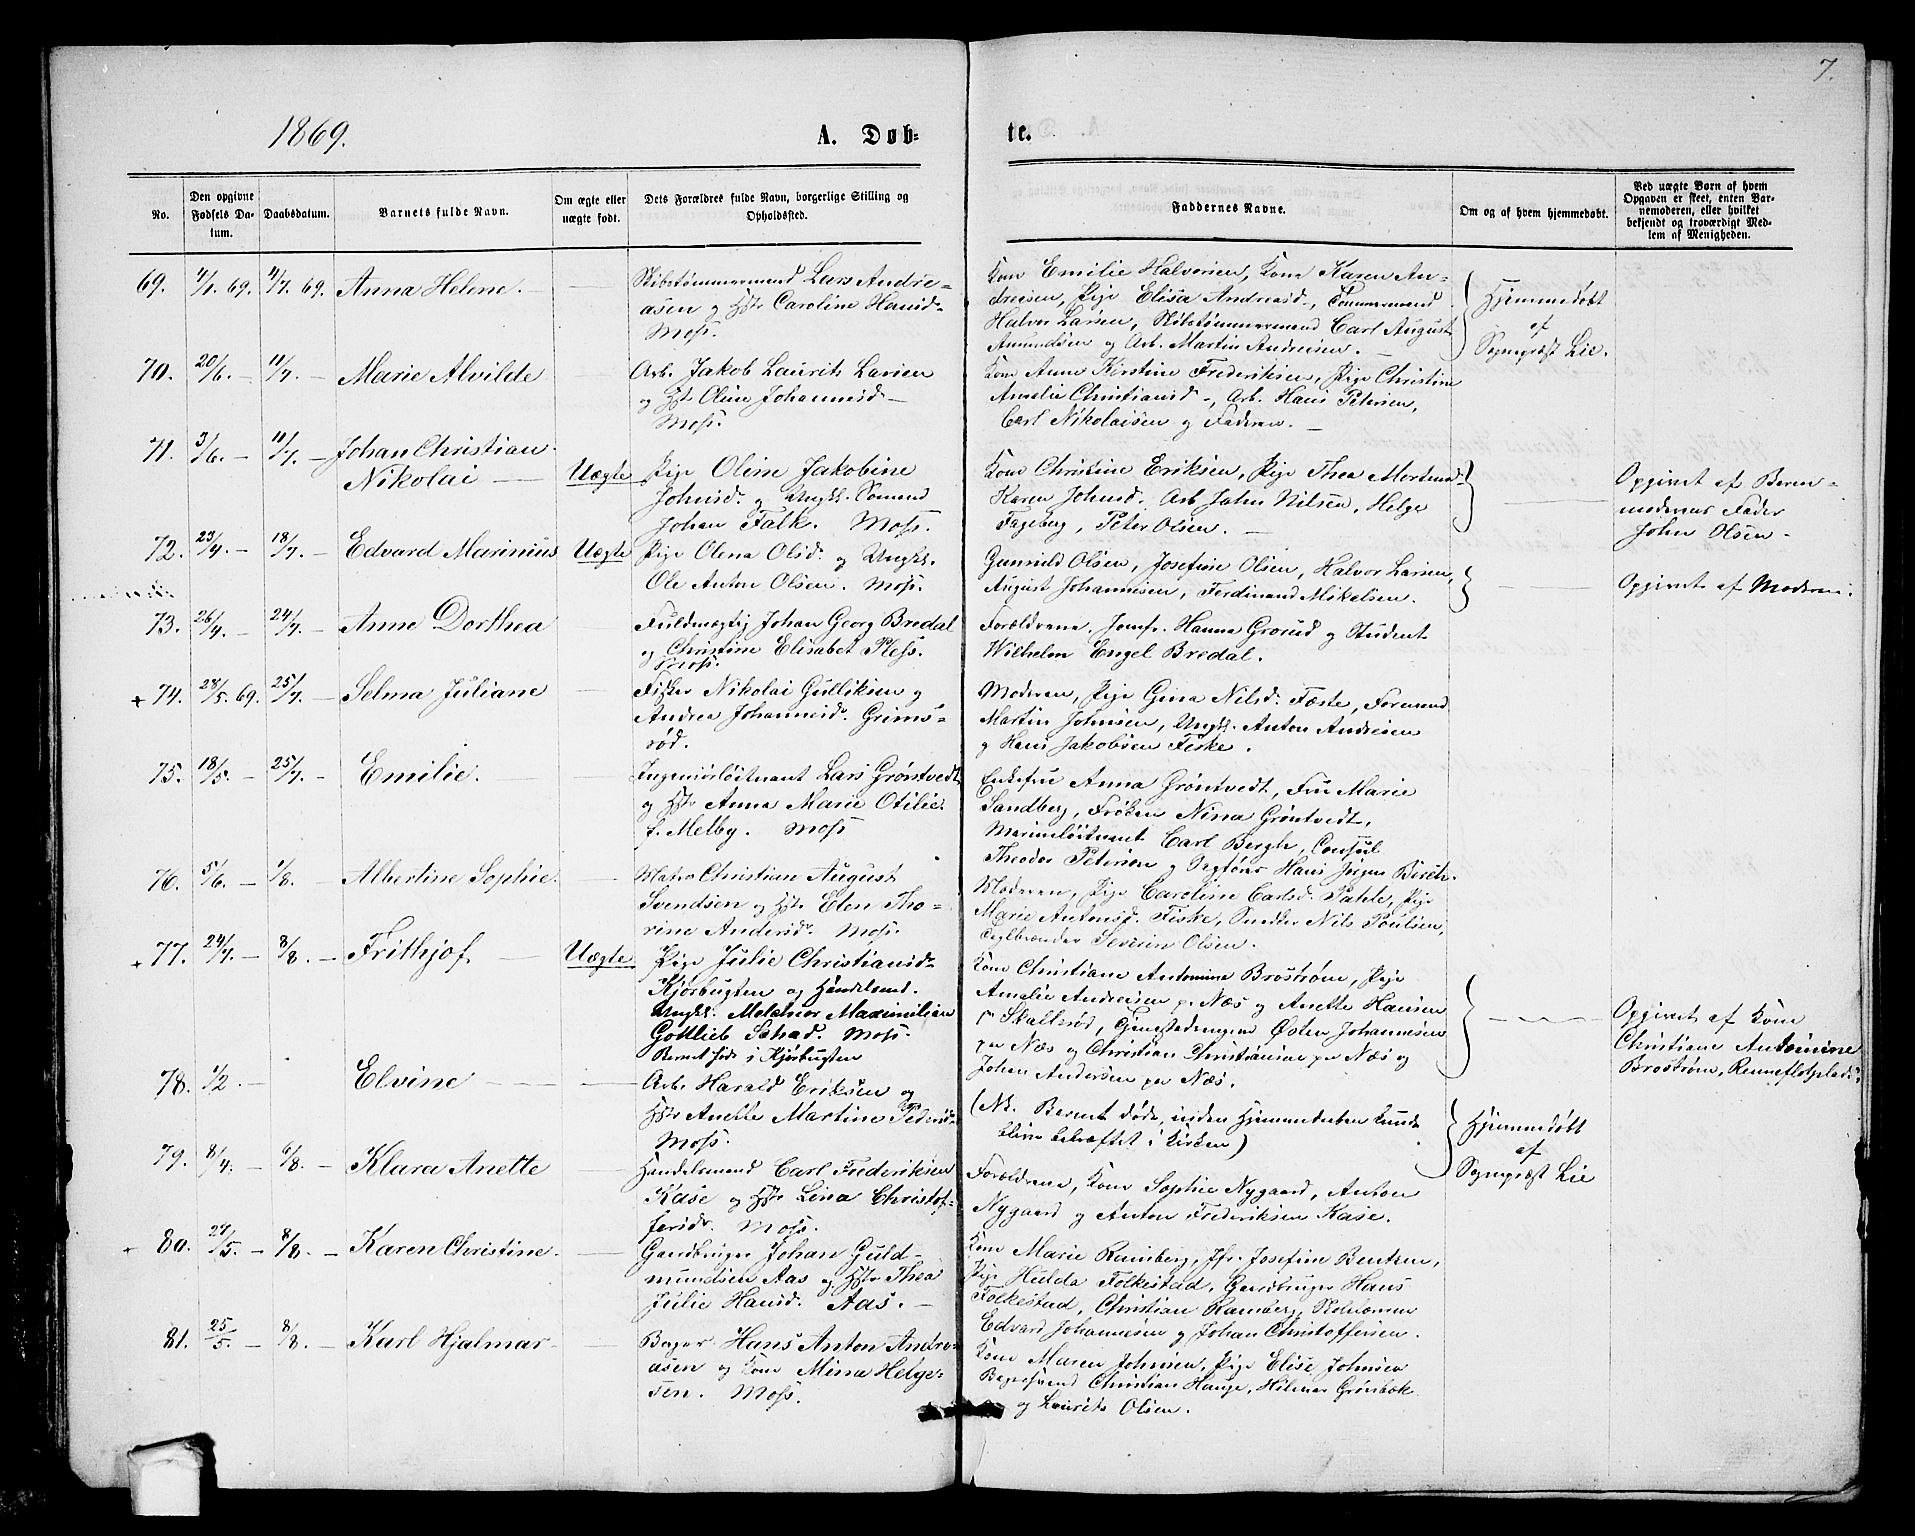 7.
1869.
A. Døb-
te.
No.
Den opgivne Fødsels Da-tum.
Daabsdatum.
Barnets fulde Navn.
Om ægte eller uægte født.
Dets Forældres fulde Navn, borgerlige Stilling og Opholdssted.
Faddernes Navne.
Om og af hvem hjemmedøbt.
Ved uægte Børn af hvem Opgaven er skeet, enten Bar-nemoderen, eller hvilket bekjendt og troværdigt Med-lem af Menigheden.
69. 4/1. 69. 4/7. 69. Anna Helene.
Skibstømmermand Lars Andre-
asen og Hstr Caroline Hansd.
Moss.
Kone Emilie Halvorsen, Kone Karen An-
dresen, Pige Elisa Andreasd., Tømmermand
Halvor Larsen, Skibstømmermand Carl August
Amundsen og Arb. Martin Andresen.
Hjemmedøbt
af
Sognepræst Lie.
70. 20/6. 11/7. Marie Alvilde
Arb. Jakob Laurits Larsen
og Hstr Oline Johannesd.
Moss.
Kone Anne Kirstine Frederiksen, Pige Christine
Amalie Christiansd., Arb. Hans Petersen,
Carl Nikolaisen og Faderen.
71. 3/6. 11/7. Johan Christian
Nikolai Uægte
Pige Oline Jakobine
Johnsd. og Ungk. Sømand
Johan Falk. Moss.
Kone Christine Eriksen, Pige Thea Mortensd.
Karen Johnsd. Arb. John Nilsen, Helge
Fageberg, Peter Olsen.
Opgivet af Barne-
moderens Fader
John Olsen.
72. 23/4. 18/7. Edvard Marinius Uægte
Pige Olena Olsd. og Ungk.
Ole Anton Olsen. Moss.
Gunnild Olsen, Josefine Olsen, Halvor Larsen,
August Johannesen, Ferdinand Mikelsen.
Opgivet af Moderen.
73. 26/4. 24/7. Anne Dorthea
Fuldmægtig Johan Georg Bredal
og Christine Elisabet Pless.
Moss.
Forældrene, Jomfr. Hanna Grorud og Student
Wilhelm Engel Bredal.
+ 74. 28/5 69. 25/7. Selma Juliane
Fisker Nikolai Gulliksen og
Andrea Johannesd. Grims-
rød.
Moderen, Pige Gina Nilsd. Fæste, Formand
Martin Johnsen, Ungk. Anton Andresen
og Hans Jakobsen Fiske.
75. 18/5. 25/7. Emilie.
Ingeniørløitnant Lars Grøntvedt
og Hstr Anna Marie Otilie
f. Melby. Moss
Enkefru Anna Grøntvedt, Fru Marie
Sandberg, Frøken Nina Grøntvedt,
Marineløitnant Carl Bergh, Consul
Theodor Peterson og Sagfører Hans Jørgen Birch.
76. 5/6. 1/8. Albertine Sophie.
Matros Christian August
Svendsen og Hstr Elen Tho-
rine Andersd. Moss.
Moderen, Pige Caroline Carlsd. Pahle, Pige
Marie Antonsd. Fiske, Snedker Nils Poulsen,
Teglbrænder Severin Olsen.
+ 77. 24/7. 8/8. Frithjof. Uægte
Pige Julie Christiansd.
Kjørbugten og Handelsmd.
Ungk. Melchior Maximilian
Gottlieb Schad. Moss.
Barnet født i Kjørbugten
Kone Christiane Antomine Brostrøm, Pige
Amalie Andresen pr Næs og Anette Hansen
pr Skallerød, Tjenestedrengene Østen Johannesen
pr Næs og Christian Christiansen pr Næs og
Johan Andersen pr Næs.
Opgivet af Kone
Christiane Antomine
Brostrøm, Renneflotpladsen
78. 1/2. Elvine
Arb. Harald Eriksen og
Hstr Anette Martine Pedersd.
Moss.
(Nb. Barnet døde, inden Hjemmedaaben kunde
blive bekræftet i Kirken)
Hjemmedøbt
af
Sognepræst Lie
79. 8/4. 6/8. Klara Anette
Handelsmand Carl Frederiksen
Kase og Hstr Lina Christof-
fersdr. Moss.
Forældrene, Kone Sophie Nygaard, Anton
Nygaard og Anton Frederiksen Kase.
+ 80. 27/5. 8/8. Karen Christine.
Gaardbruger Johan Guld-
mundsen Aas og Hstr Thea
Julie Hansd. Aas.
Kone Marie Ramberg, Jfr. Josefine Bentsen,
Pige Hulda Folkestad, Gaardbruger Hans
Folkestad, Christian Ramberg, Skolelærer
Edvard Johannesen og Johan Christoffersen.
81. 25/5. 8/8. Karl Hjalmar
Bager Hans Anton Andre-
asen og Kone Mina Helge-
sen. Moss.
Kone Maren Johnsen, Pige Elise Johnsen
Bagersvend Christian Hauge, Hilmar Grønbæk
og Laurits Olsen.